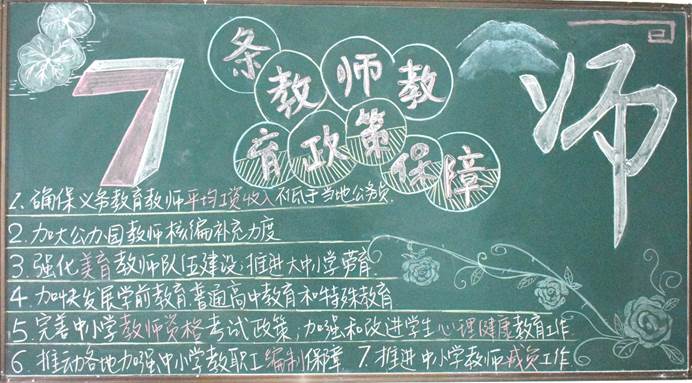 7条教师教
育政策保障
师
1.确保义务教育教师平均工资收入不低于当地公务员.
2.加大公办园教师核编补充力度
3.强化美育教师队伍建设,推进大中小学劳育
4.加快发展学前教育.普通高中教育和特殊教育
5.完善中小学教师资格考试政策,加强和改进学生心理健康教育工作
6.推动各地加强中小学教职工编制保障 7.推进中小学教师减负工作